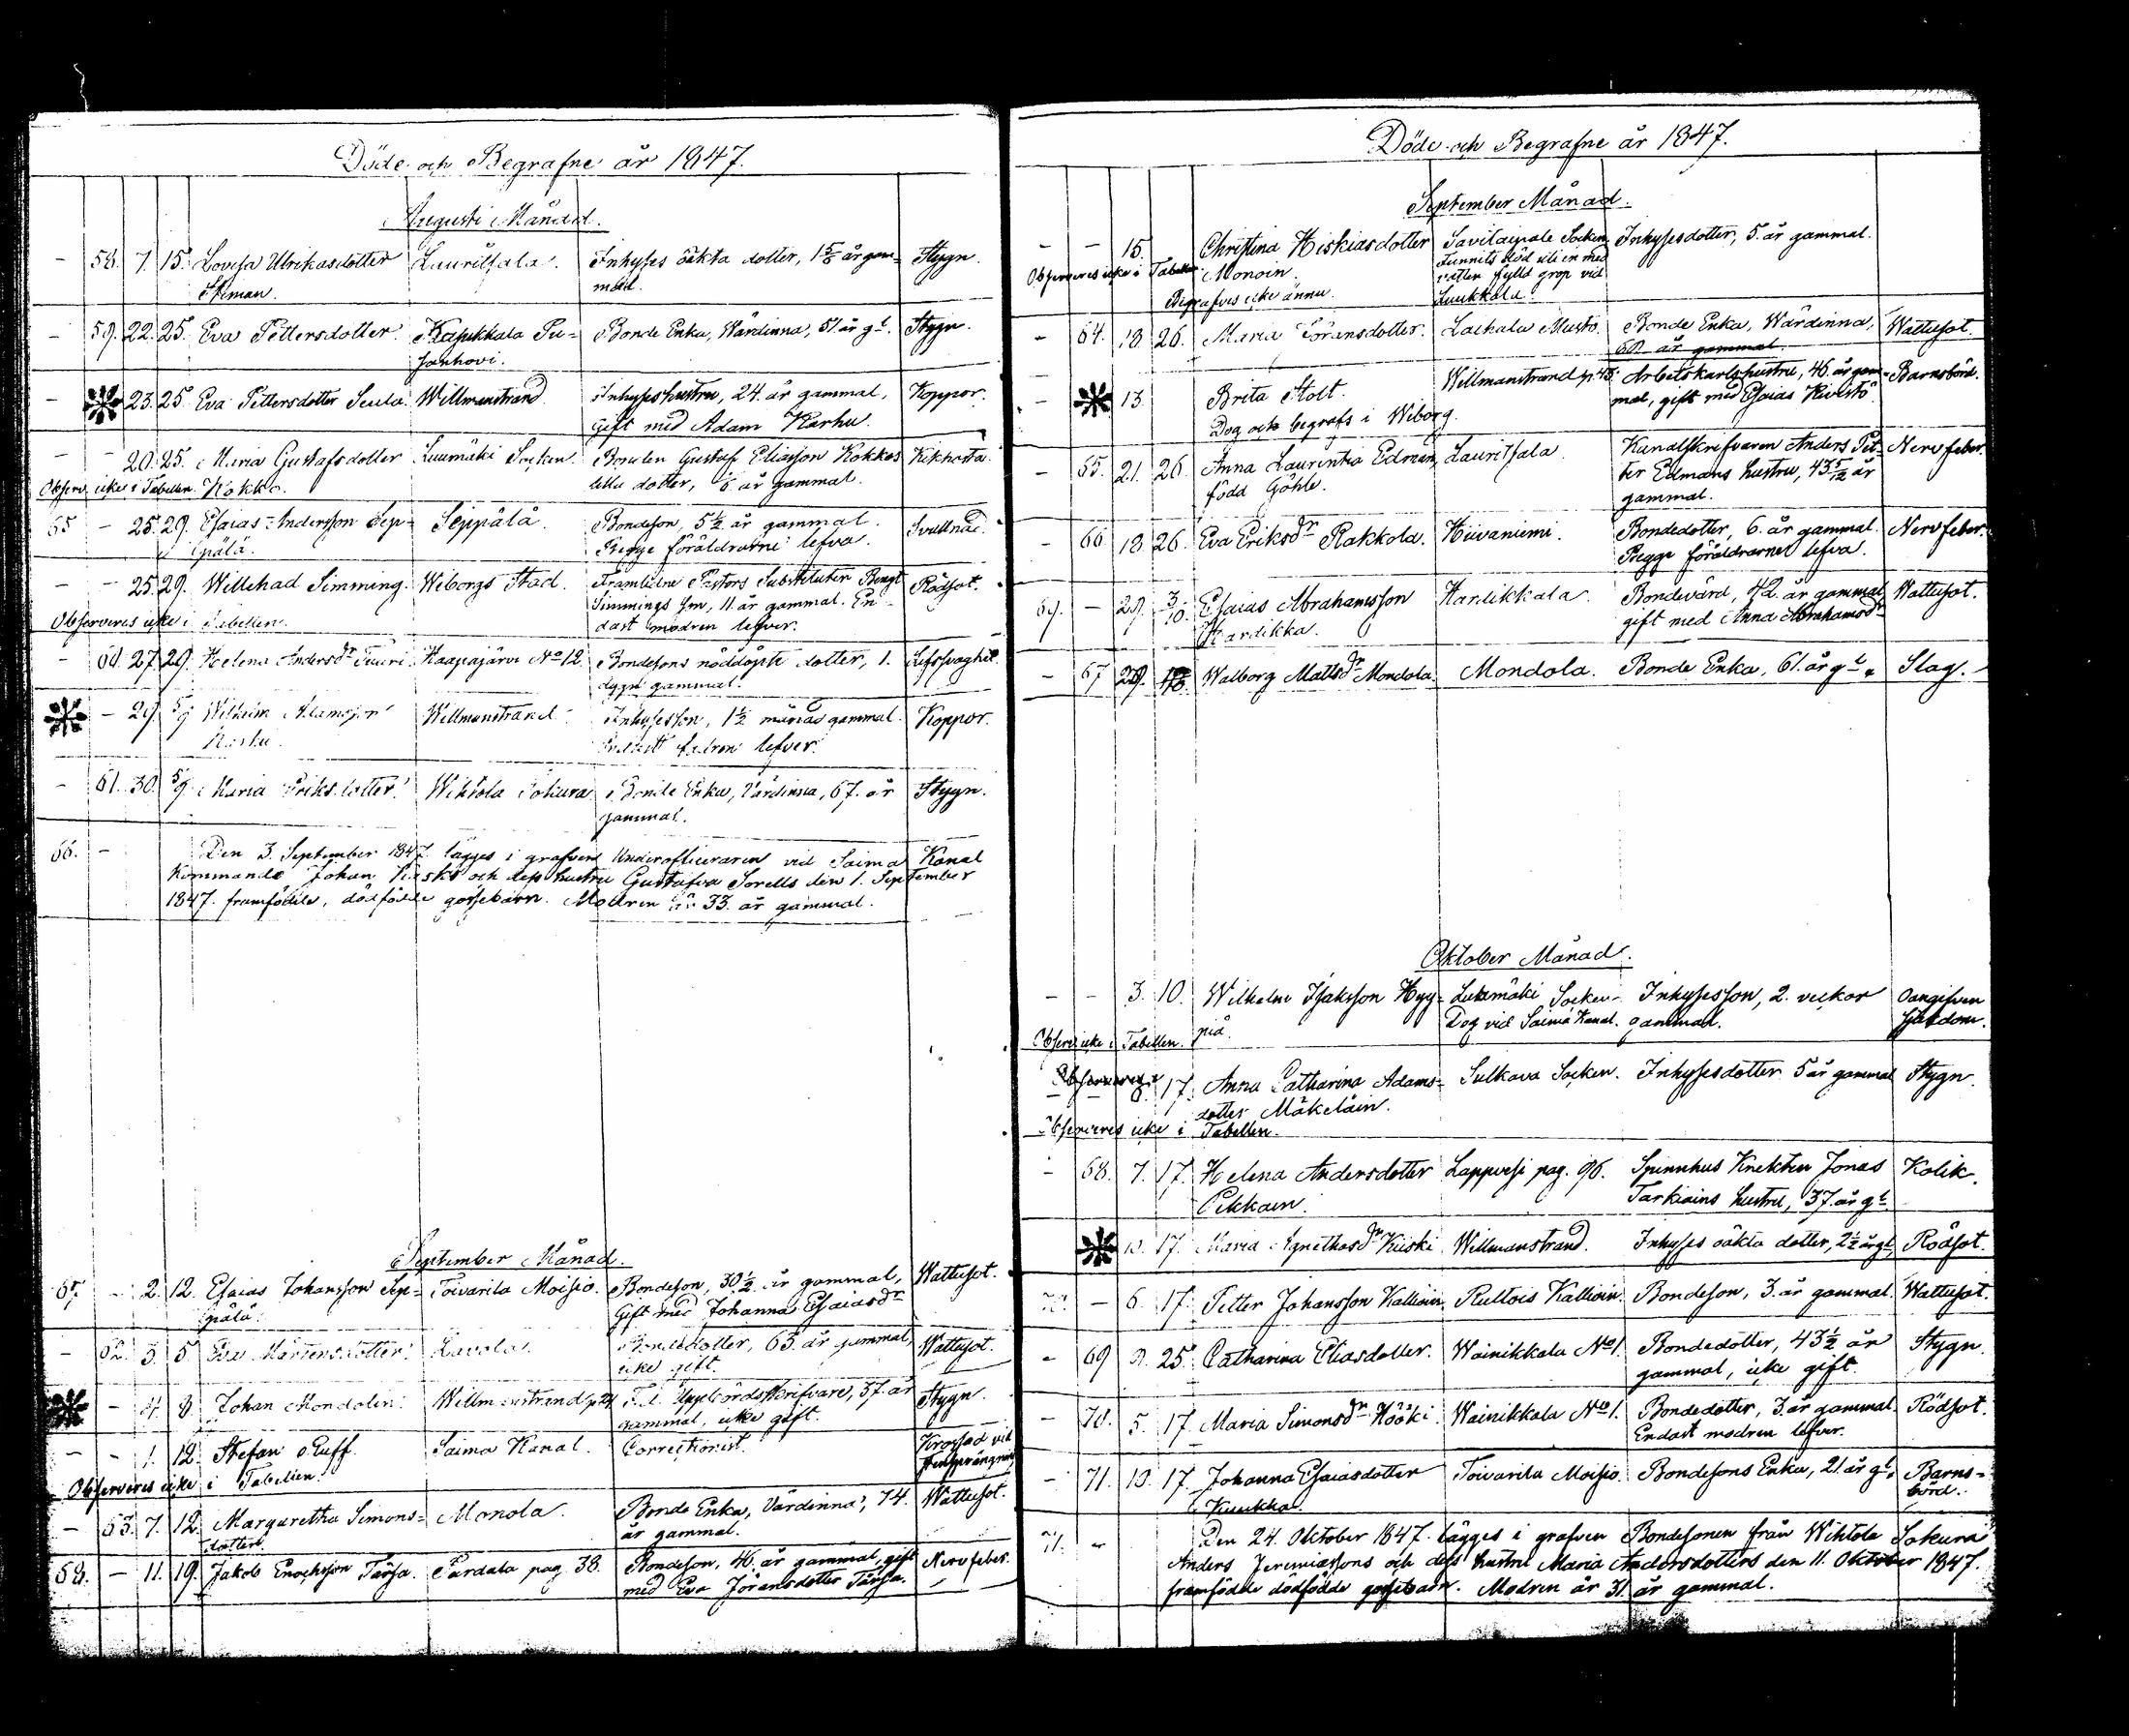 Döde och Begrafne år 1847.
Augusti Månad.
– 58. 7. 15. Lovisa Ulrikasdotter Lauritsala. Inhyses oäkta dotter, 1 5/6 år gam= Stygn.
mal.
– 59. 22. 25. Eva Pettersdotter Kapukkala Bonde Enka, Värdinna, 51. år gl. Stygn.
– 23. 25. Eva Pettersdotter Willmanstrand Inhyses hustru, 24. år gammal, Koppor.
Gift med Adam Karhu.
– – 20. 25. Maria Gustafsdotter Luumäki Socken. Bonden Gustaf Eliasson Kokkos Kikhosta.
Observ. icke i Tabellen. Kokko. lilla dotter, 6 år gammal.
65 – 25. 29. Esaias Andersson Sep= Seppälä. Bondeson, 5½ år gammal. Svullnad.
pälä. Begge föräldrarne lefva.
– – 25. 29. Willehad Simming. Wiborgs Stad. Framlidne Pastors Substituten Bengt Rödsot.
Simmings son, 11. år gammal. En=
Observeres icke i Tabellen. dast modren lefver.
– 60. 27. 29. Helena Andersdr Tuuri Haapajärvi No 12. Bondesons nöddöpte dotter, 1. Lifssvaghet.
dygn gammal.
– 29. 5/9 Wilhelm Adamsson Willmanstrand. Inhysesson, 1½ månad gammal. Koppor.
Karhu. Endast fadren lefver.
– 61. 30. 5/9 Maria Eriksdotter. Wihtola Sokura Bonde Enka, Värdinna, 67. år Stygn.
gammal.
66. – Den 3. September 1847 lägges i grafven Underofficeraren vid Saima Kanal
Kommando Johan och dess hustru Gustafva Sorells den 1. September
1847. framfödde, dödfödde gossebarn. Modren är 33. år gammal.
September Månad.
67. – 2. 12. Esaias Johansson Sep= Toivarila Moisio. Bondeson, 30½ år gammal, Wattusot.
pälä. Gift med Johanna Esaiasdr
– 62. 3. 5. Eva Mårtensdotter. Lavola. Bondedotter, 63. år gammal, Wattusot.
icke gift.
– 4. 8. Johan Mondolin. Willmanstrand p. 24 F.d. Uppbördsskrifvare, 37. år Stygn.
gammal, icke gift.
– – 1. 12. Stefan Saima Kanal. Correctionist. Krossad vid
Observeres icke i Tabellen. stensprängning
– 63. 7. 12. Margaretha Simons= Monola. Bonde Enka, Värdinna, 74. Wattusot.
dotter. år gammal.
68. – 11. 19. Jakob Enochsson Tärsa. Pardala pag. 38. Bondeson, 46. år gammal, gift Nervfeber.
med Eva Jöransdotter Tärsa.
Döde och Begrafne år 1847.
September Månad.
– – 15. Christina Hiskiasdotter Savitaipale Socken. Inhysesdotter, 5. år gammal.
Observeres icke i Tabellen. Monoin. Funnits död uti en med
vatten fylld grop vid
Begrafves icke ännu. Luukkala.
– 64. 18 26. Maria Göransdotter. Laihala Musto Bonde Enka, Wärdinna, Wattusot.
60. år gammal.
– 13. Brita Stolt. Willmanstrand p. 43. Arbetskarlshustru, 46. år gam= Barnsbörd.
mal, gift med Esaias Kivistö
Dog och begrafs i Wiborg.
– 65. 21. 26. Anna Laurentia Edman, Lauritsala. Kanalskrifvaren Anders Pet= Nervfeber.
född Göhle. ter Edmans hustru, 43 5/12 år
gammal.
– 66 18. 26. Eva Eriksdr Rakkola. Hiivaniemi. Bondedotter, 6. år gammal. Nervfeber.
Begge föräldrarne lefva.
69. – 29. 3/10. Esaias Abrahamsson Hardikkala. Bondevärd, 42. år gammal, Wattusot.
Hardikka. gift med Anna Abrahamsdr
– 67 29. Walborg Mattsdr Mondola. Mondola. Bonde Enka, 61. år gl. Slag.
Oktober Månad.
– – 3. 10. Wilhelm Isaksson Hyy= Luumäki Socken. Inhysesson, 2. veckor Oangifven
piä. Dog vid Saima Kanal. gammal. sjukdom.
Observ. icke i Tabellen.
– – 8. 17. Anna Catharina Adams= Sulkava Socken. Inhysesdotter 5 år gammal Stygn.
dotter Mäkeläin.
Observeres icke i Tabellen.
– 68. 7. 17. Helena Andersdotter Lappvesi pag. 96. Spinnhus Knekten Jonas Kolik.
Pekkain. Tarkiains hustru, 37. år gl.
17. Maria Agnethasdr Kiiski Willmanstrand. Inhyses oäkta dotter, 2½ år gl. Rödsot.
70. – 6. 17. Petter Johansson Kallioin. Ruttois Kallioin. Bondeson, 3. år gammal. Wattusot.
– 69 9. 25. Catharina Eliasdotter. Wainikkala No 1. Bondedotter, 43½ år Stygn.
gammal, icke gift.
– 70. 5. 17. Maria Simonsdr Hööki. Wainikkala No 1. Bondedotter, 3. år gammal. Rödsot.
Endast modren lefver.
– 71. 13. 17. Johanna Esaiasdotter Toivarila Moisio. Bondesons Enka, 21. år gl. Barns=
Kuukka. börd.
71. – Den 24. Oktober 1847. lägges i grafven Bondesonen från Wihtola Sokura
Anders Jeremiassons och dess hustru Maria Andersdotters den 11. Oktober 1847.
framfödde dödfödde gossebarn. Modren är 31. år gammal.